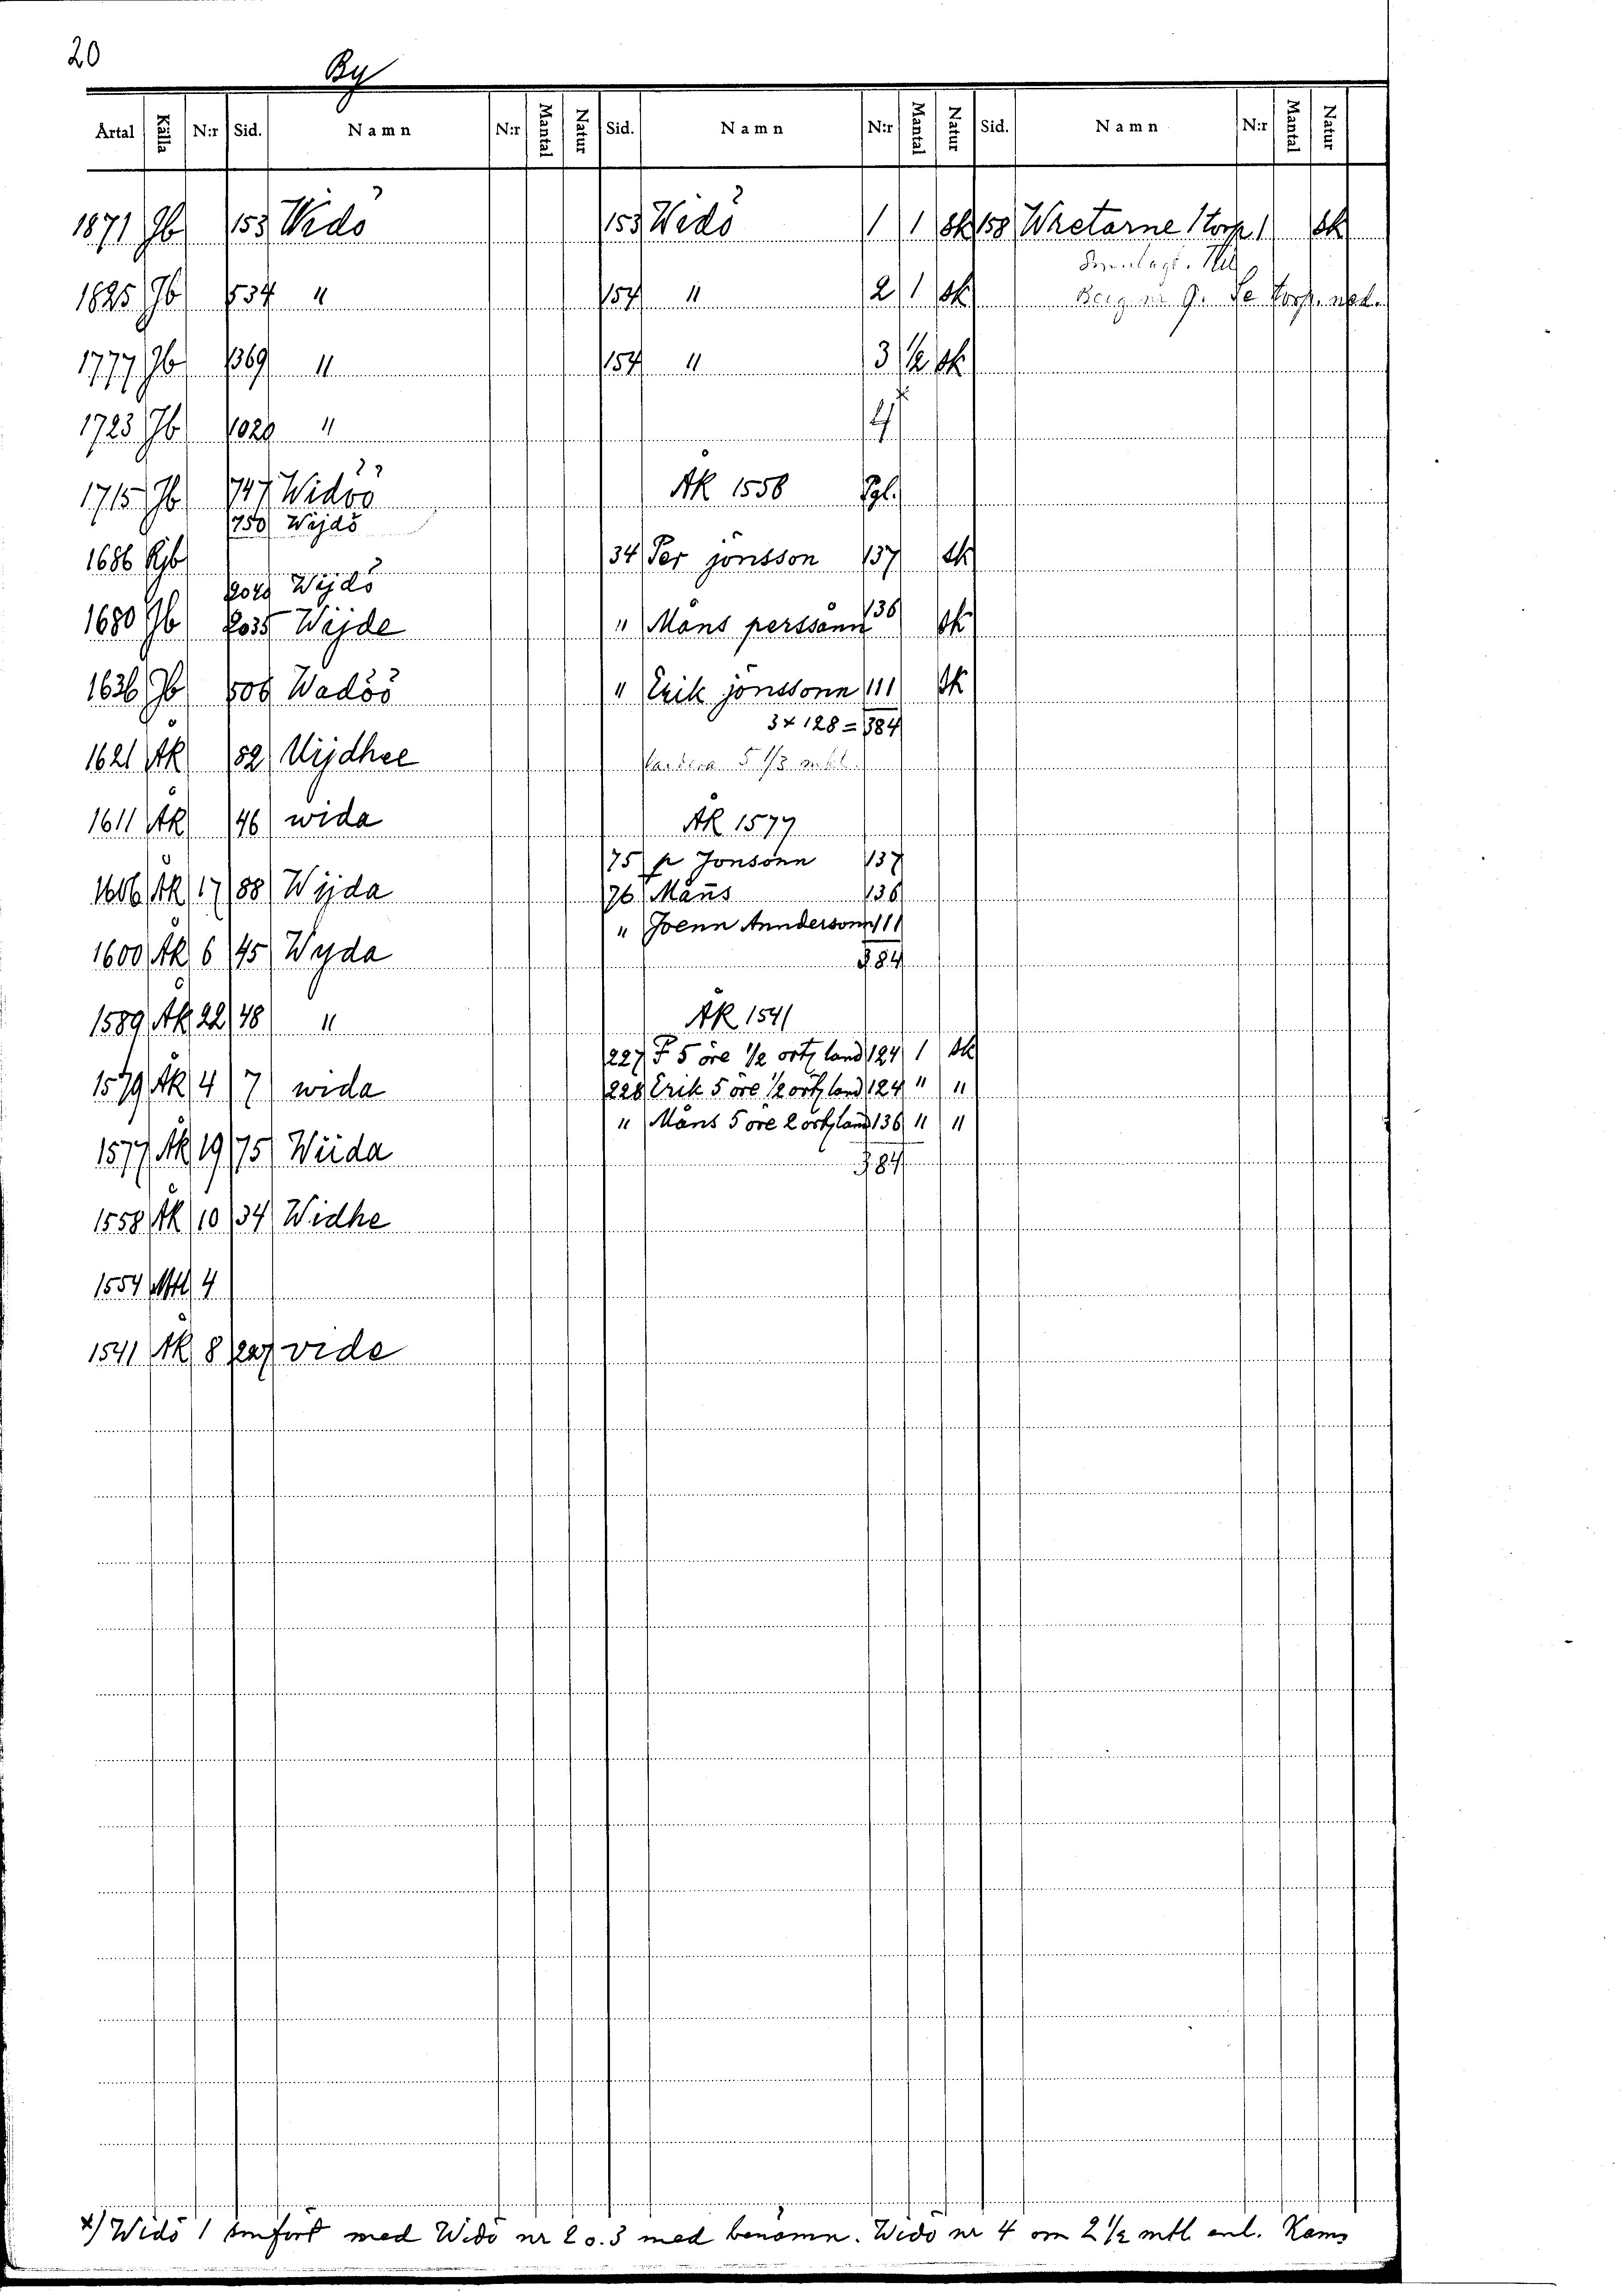 20
By
Årtal Källa N:r Sid. Namn N:r Mantal Natur Sid. Namn N:r Mantal Natur Sid. Namn N:r Mantal Natur
1871 Jb 153 Widö 153 Widö 1 1 sk 158 Whetarne /torp/ sk
1825 Jb 534 " 154 " 2 1 sk Berg nr 9. Se torp. ned.
1777 Jb 1369 " 154 " 3 1/2 sk
1723 Jb 1020 " 4 x
1715 Jb 747 Widöö ÅK 1558 Pgl.
750 Wijdö
1686 Rjb 34 Per jönsson 137 sk
2049 Wijdö
1680 Jb 2035 Wijde " Måns perssånn 136 sk
1636 Jb 506 Wadöö " Erik jönssonn 111 sk
3 x 128 = 384
1621 ÅK 52 Uijdhee 5 1/3
1611 ÅK 46 wida ÅK 1577
75 p Jonsönn 137
1606 ÅK 17 88 Wijda 76 Måns 136
" Joenn Anndersonn 111
1600 ÅK 6 45 Wyda 384
1589 ÅK 22 48 " ÅK 1541
227 F 5 öre 1/2 örtz land 124 1 sk
1579 ÅK 4 7 wida 228 Erik 5 öre 1/2 örtz land 124 " "
" Måns 5 öre 2 örtz land 136 " "
1577 ÅK 19 75 Wiida 384
1558 ÅK 10 34 Widhe
1554 Mtl 4
1541 ÅK 8 227 vide
x) Widö 1 smfört med Widö nr 2 o. 3 med benämn. Widö nr 4 om 2 1/2 mtl enl. Kam,